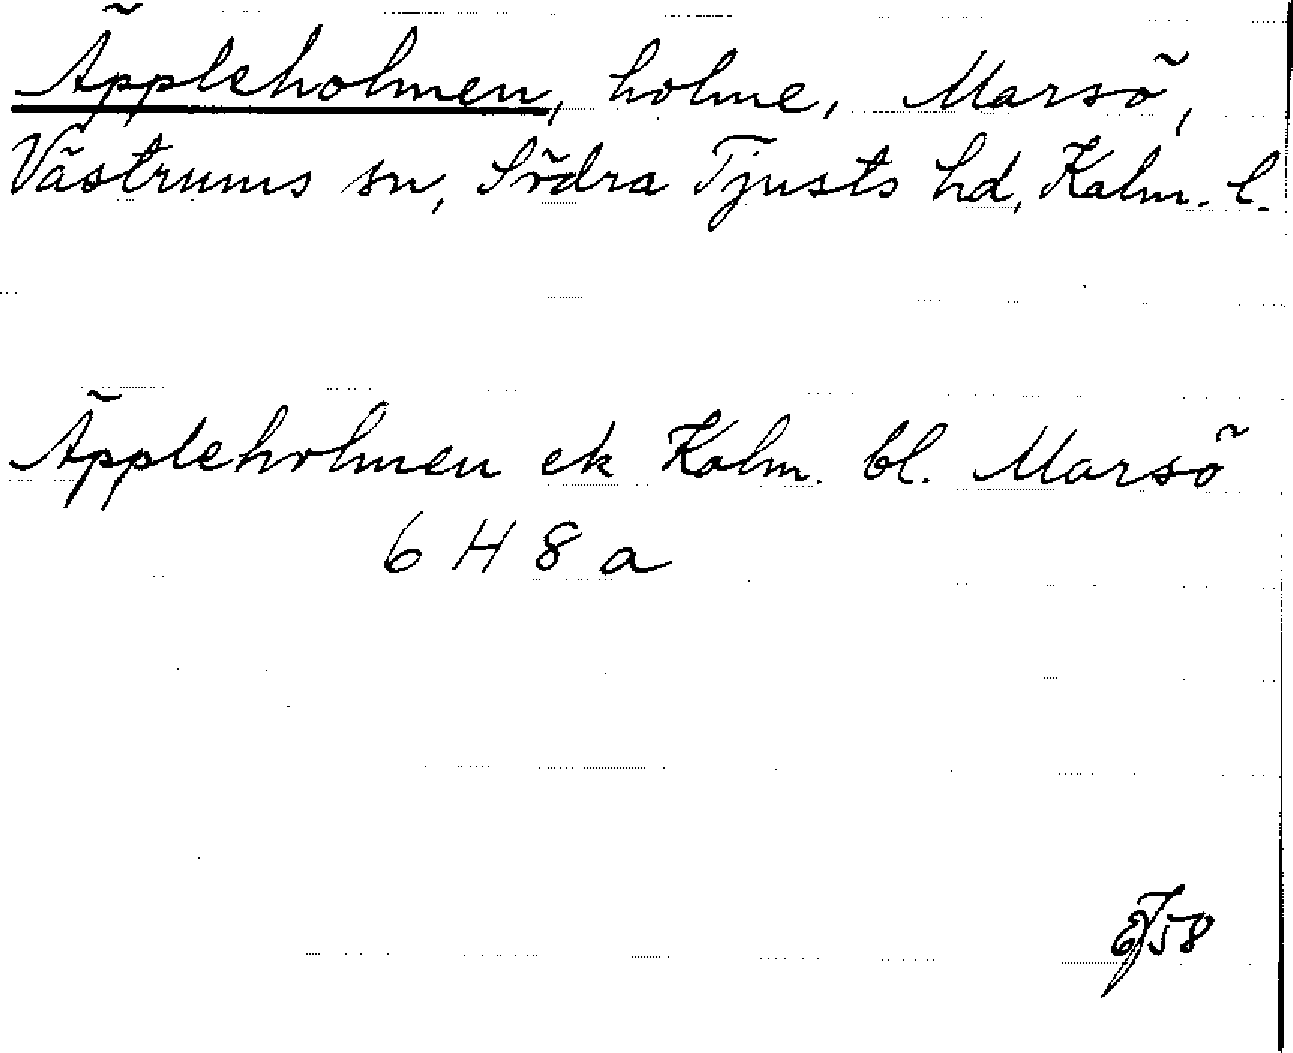 Äppleholmen, holme, Marsö,
Västrums sn, Södra Tjusts hd, Kalm. l.
Äppleholmen ek Kalm. bl. Marsö
6 H 8 a